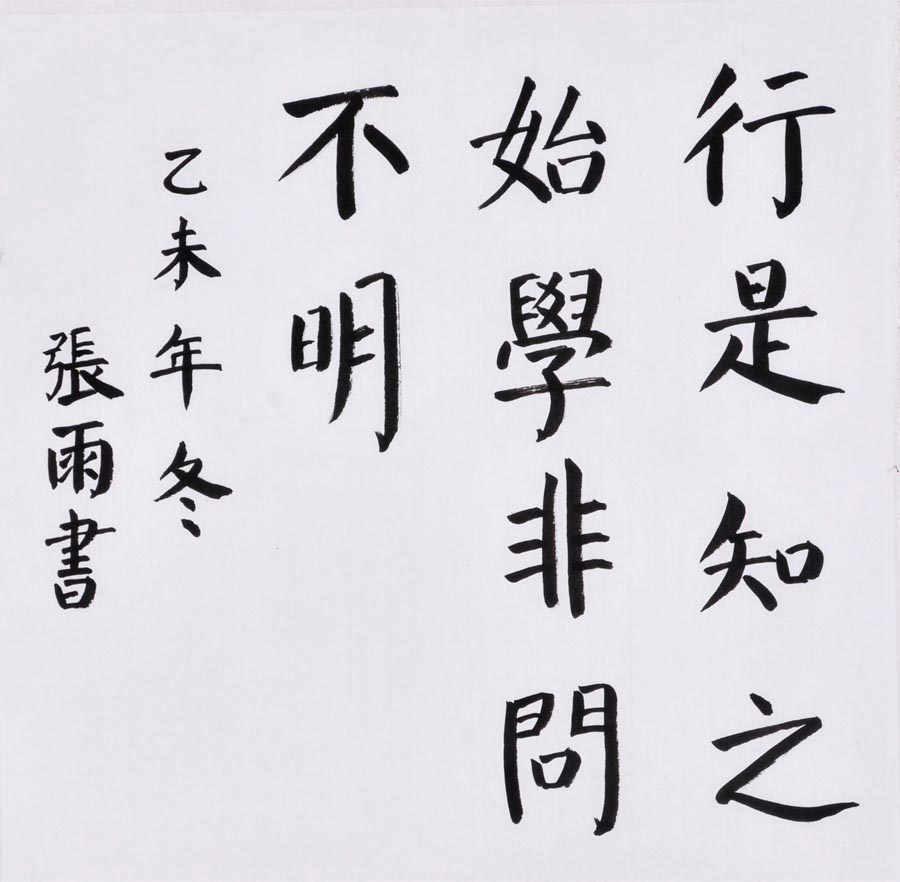 行是知之
始學非問
不明
乙未年冬
張雨書